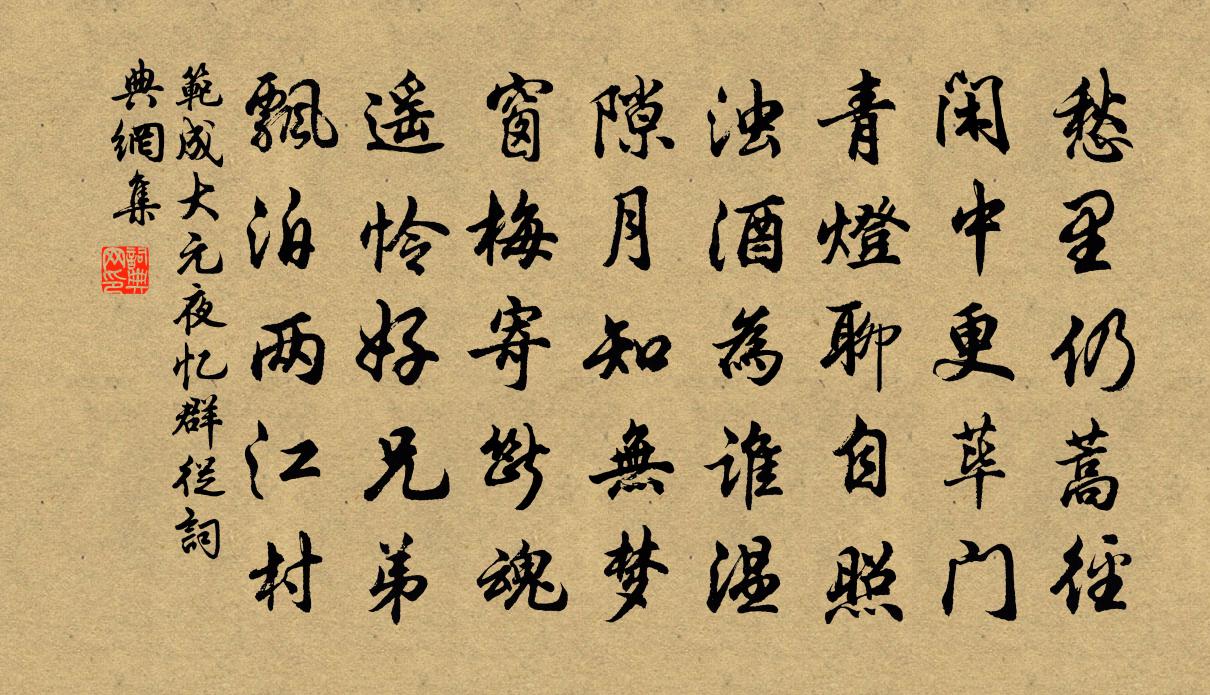 愁里仍蒿径
闲中更荜门
青燈聊自照
浊酒為谁温
隙月知無梦
窗梅寄断魂
遥怜好兄弟
飄泊两江村
範成大元夜忆群從詞
典網集
詞典网印